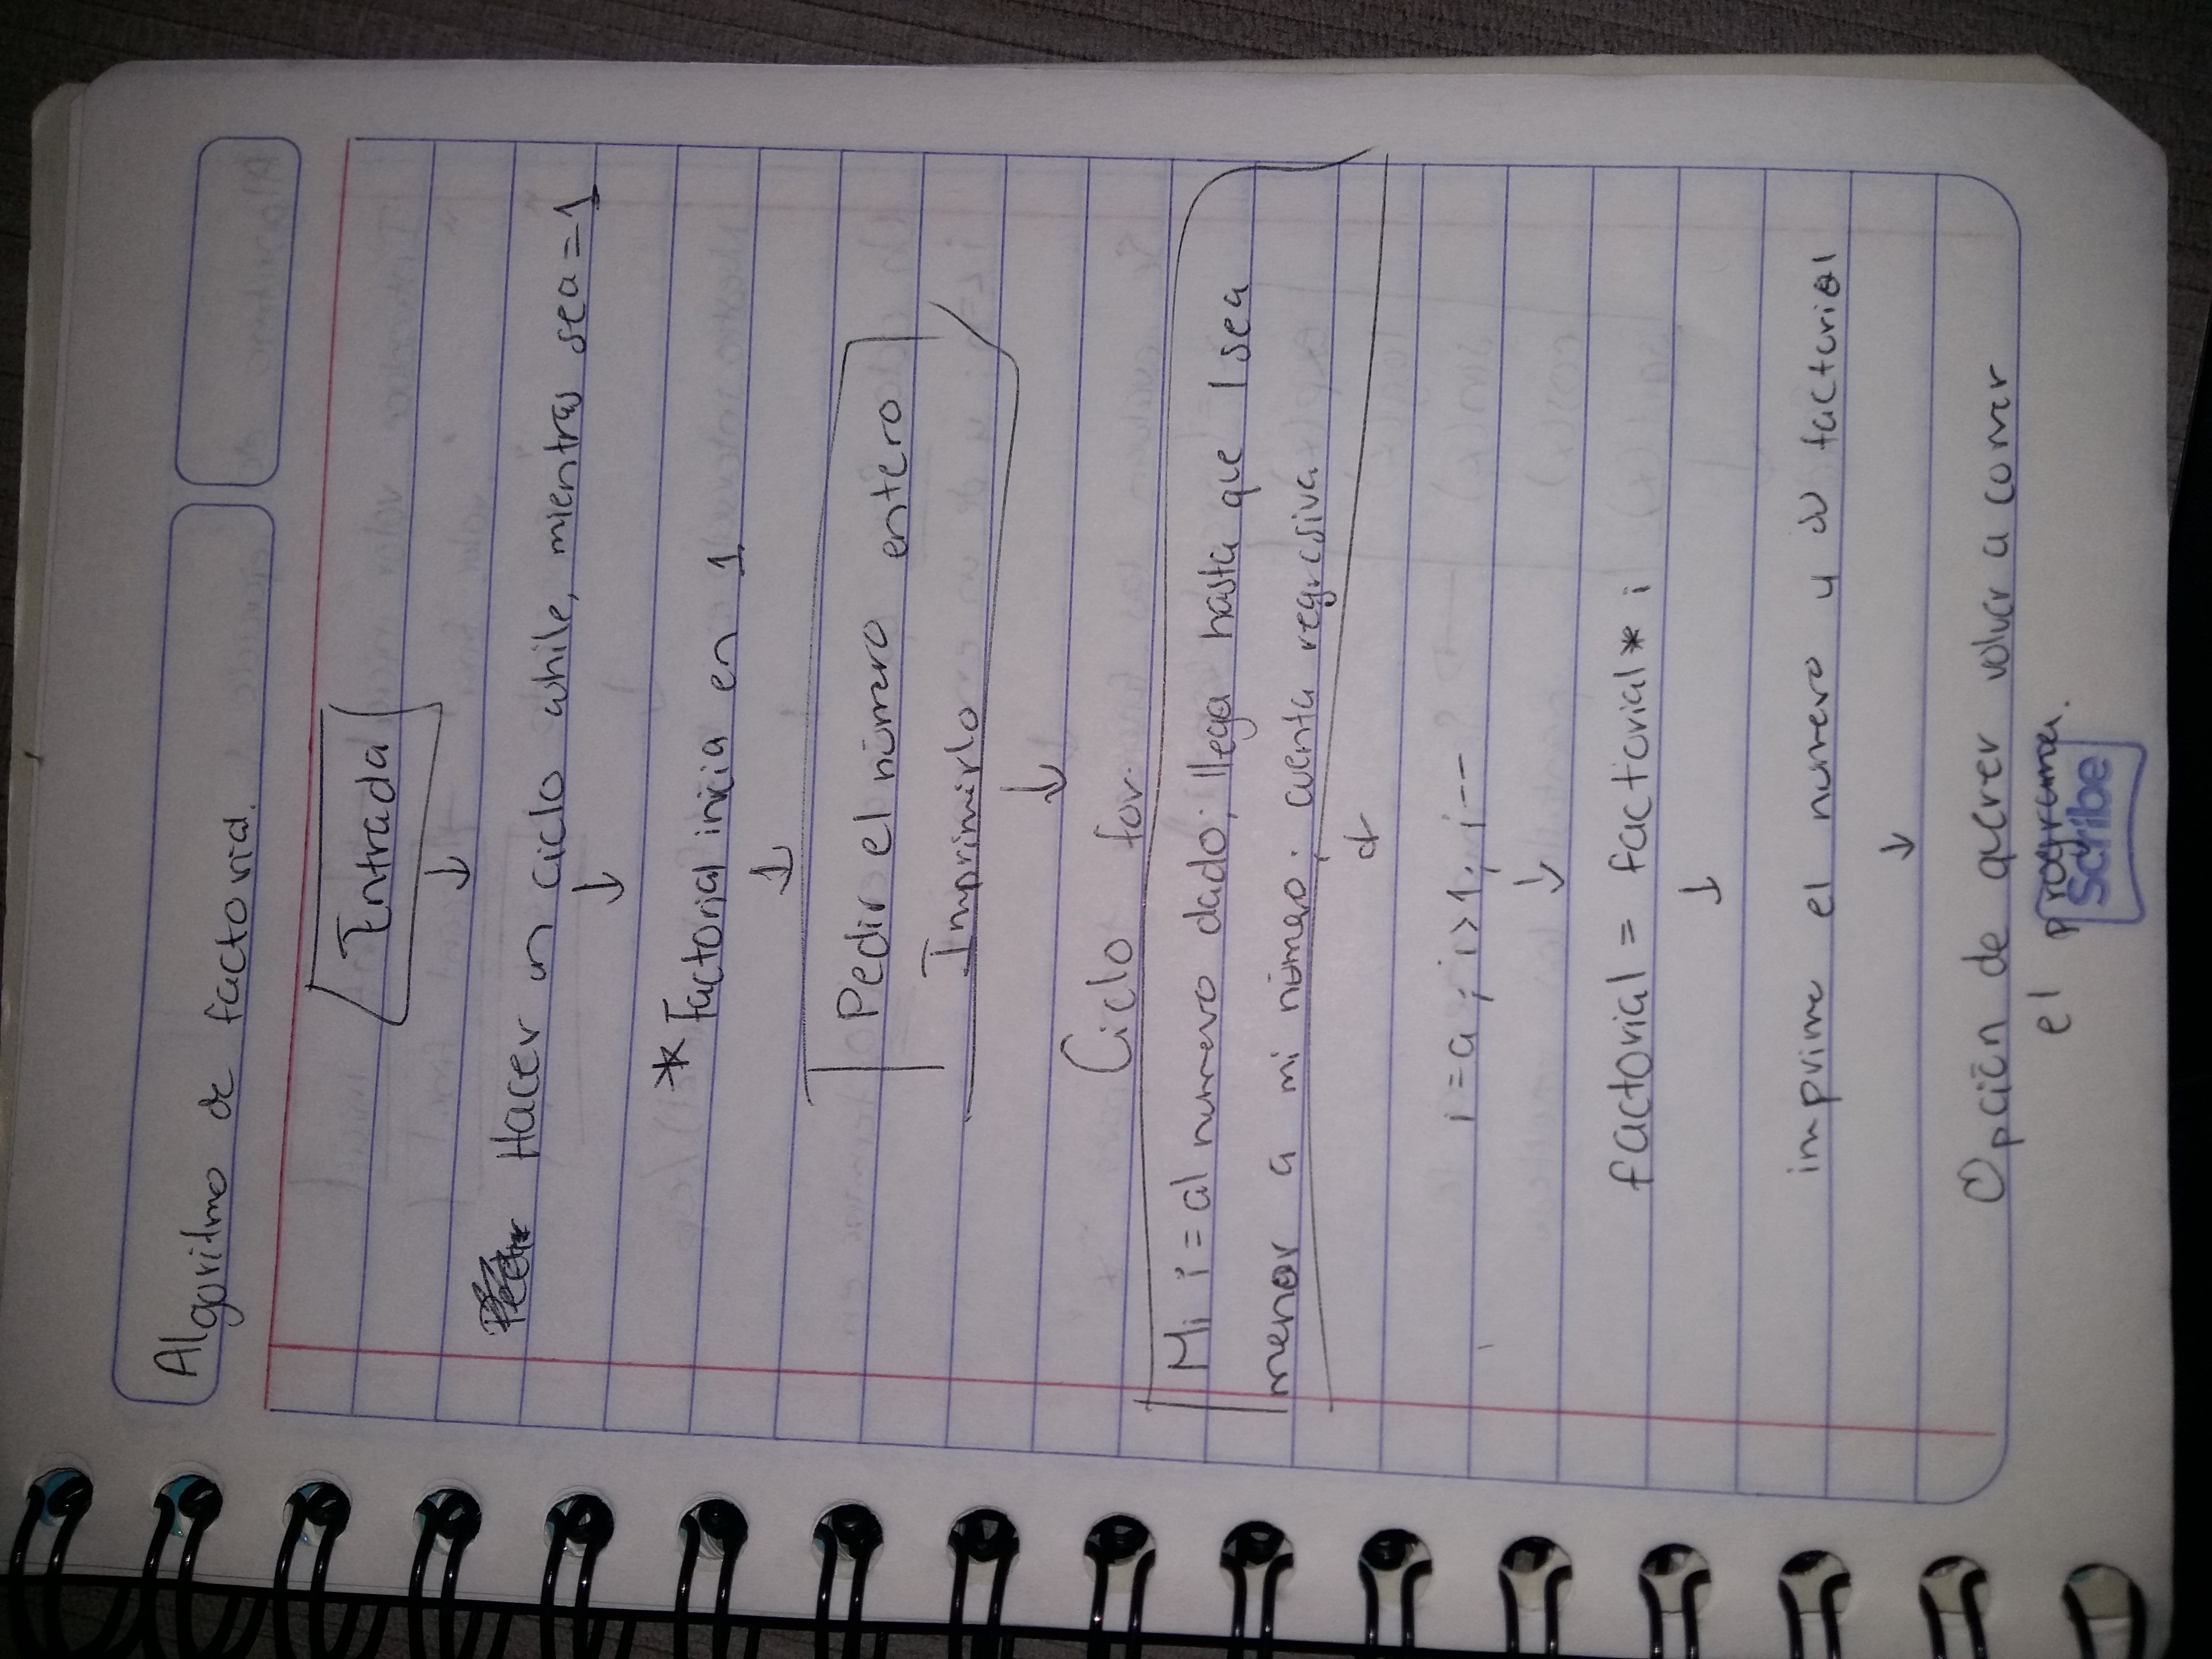 Algoritmo de factorial.
Entrada
↓
Hacer un ciclo while, mientras sea = 1
↓
* Factorial inicia en 1
↓
Pedir el número entero
Imprimirlo
↓
Ciclo for.
Mi i = al numero dado; llega hasta que 1 sea
menor a mi número; cuenta regresiva
↓
i = a ; i > 1; i --
↓
factorial = factorial * i
↓
imprime el numero y su factorial
↓
Opción de querer volver a correr
el programa.
Scribe